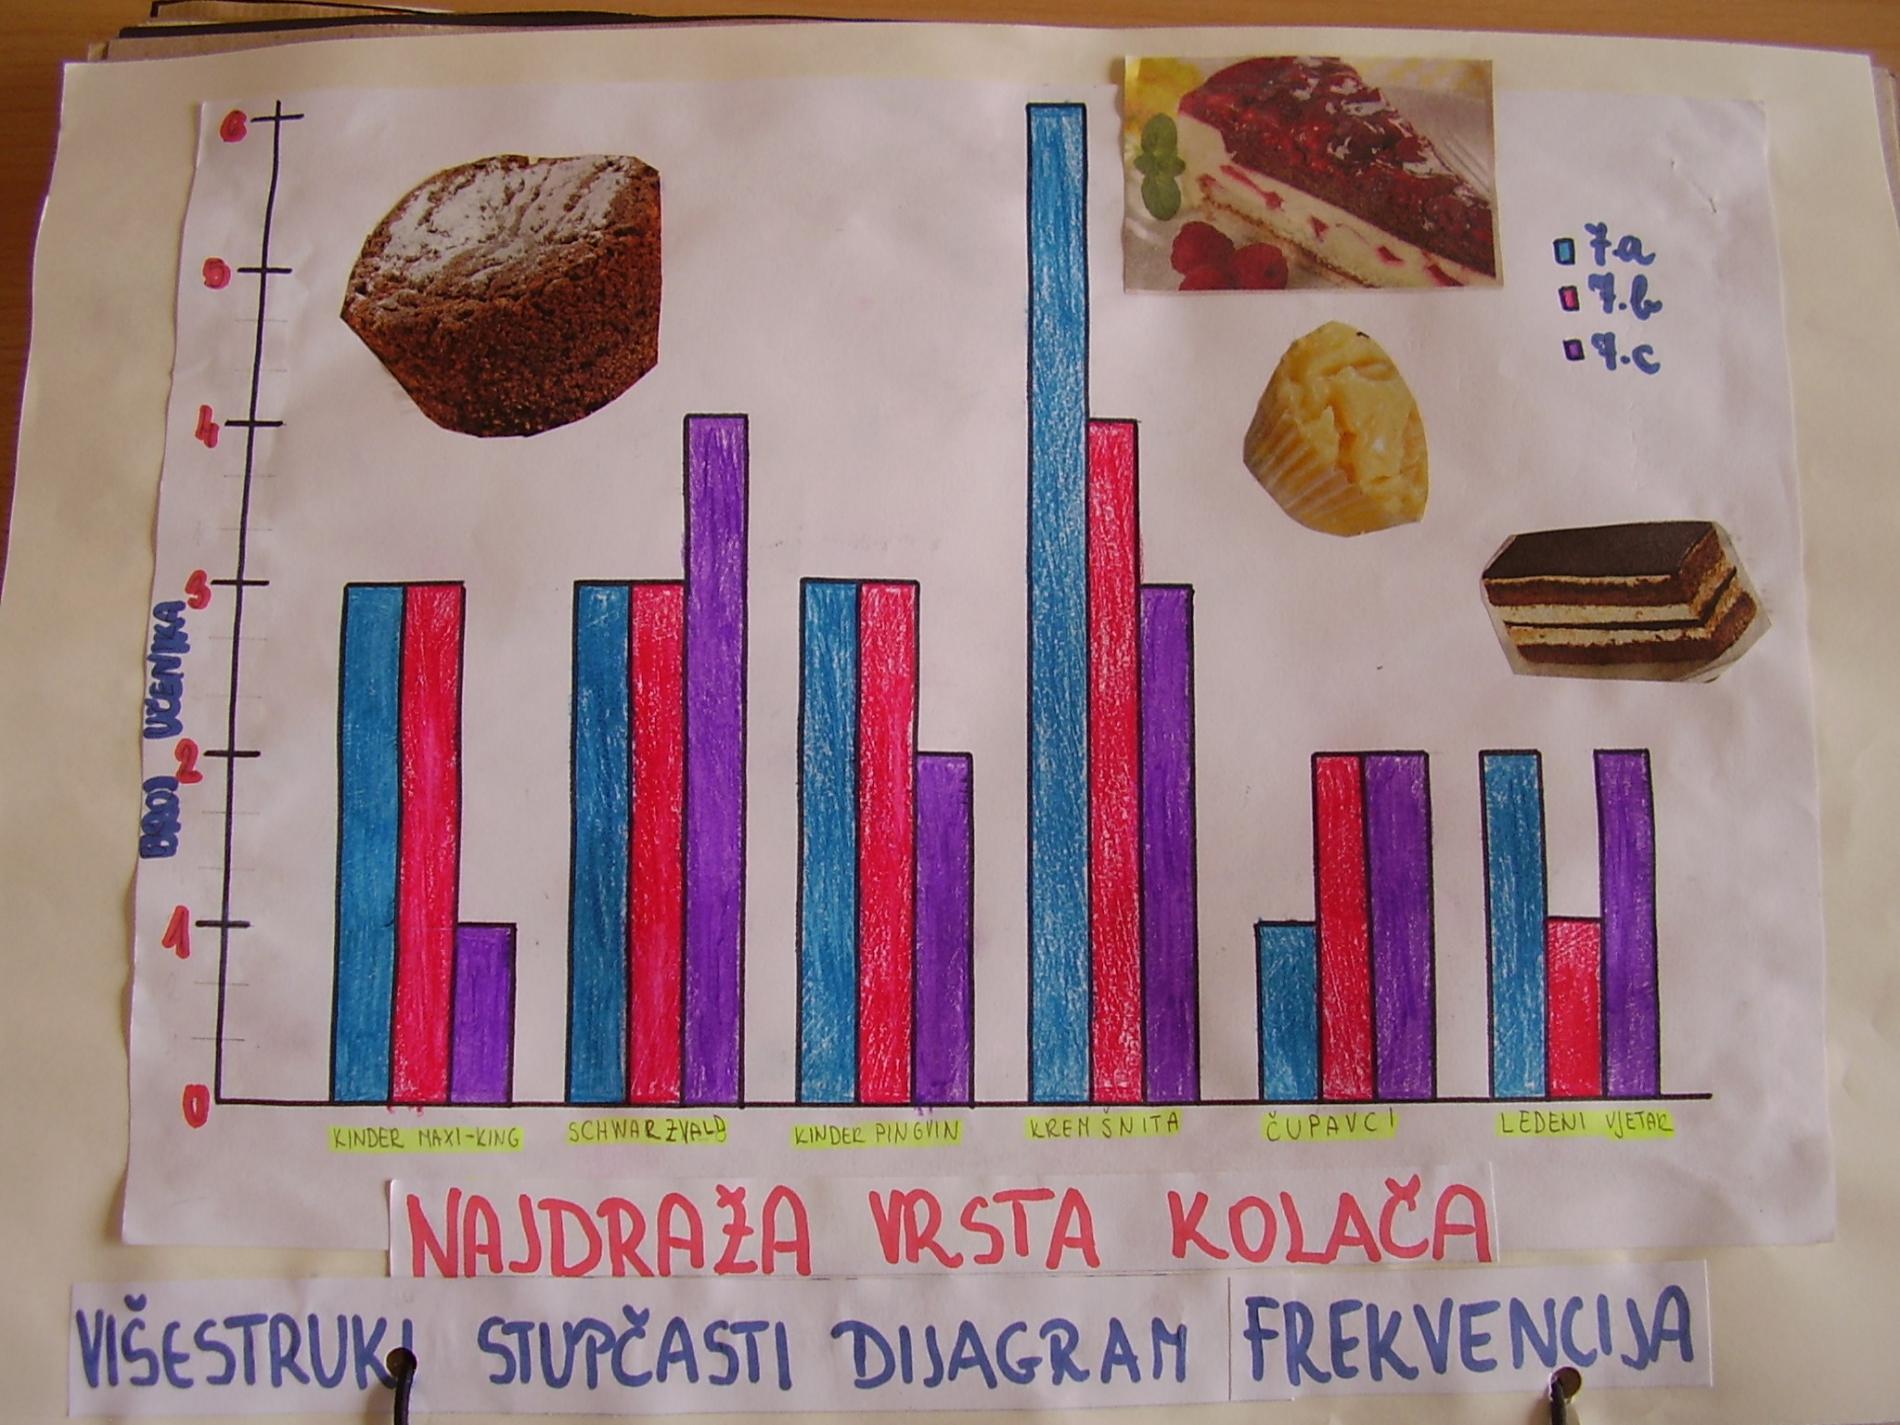 6
5
4
3
2
1
0
BROJ UČENIKA
7.a
7.b
7.c
KINDER MAXI-KING
SCHWARZVALD
KINDER PINGVIN
KREMŠNITA
ČUPAVCI
LEDENI VJETAR
NAJDRAŽA VRSTA KOLAČA
VIŠESTRUKI STUPČASTI DIJAGRAM FREKVENCIJA